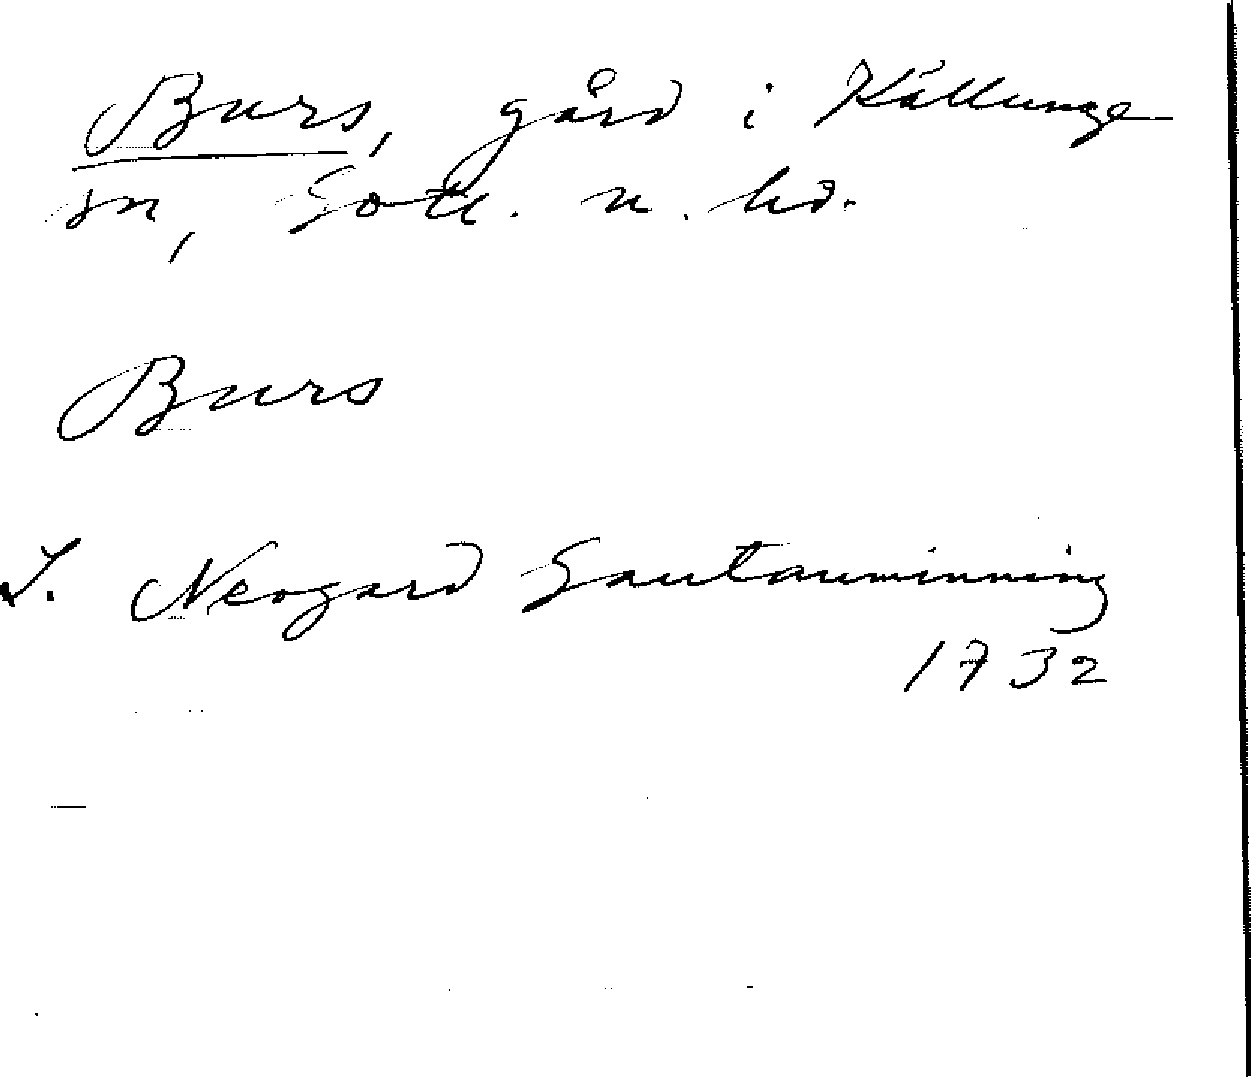 Burs, gård i Källunge
sn, Gotl. n. hd.
Burs
J. Neogard Gautauminning
1732